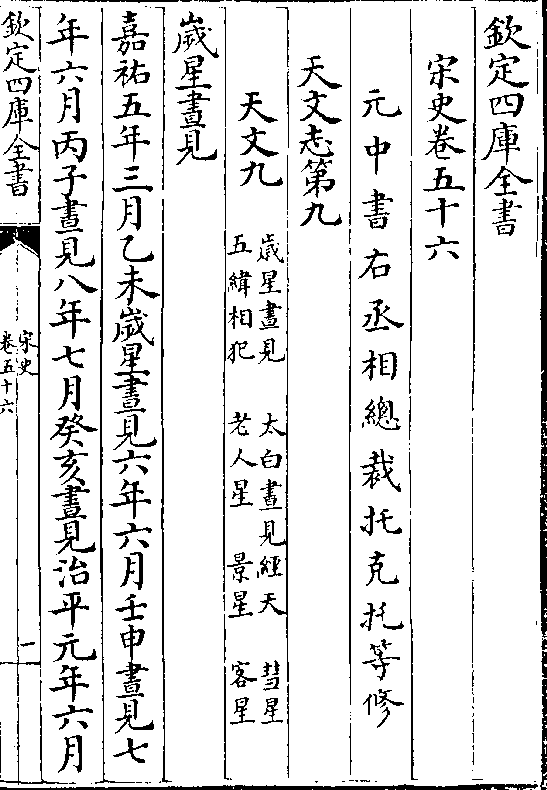 欽定四庫全書
宋史卷五十六
元中書右丞相總裁托克托等修
天文志第九
天文九
歲星晝見 太白晝見經天 彗星
五緯相犯 老人星 景星 客星
歲星晝見
嘉祐五年三月乙未歲星晝見六年六月壬申晝見七
年六月丙子晝見八年七月癸亥晝見治平元年六月
欽定四庫全書
宋史
卷五十六
一